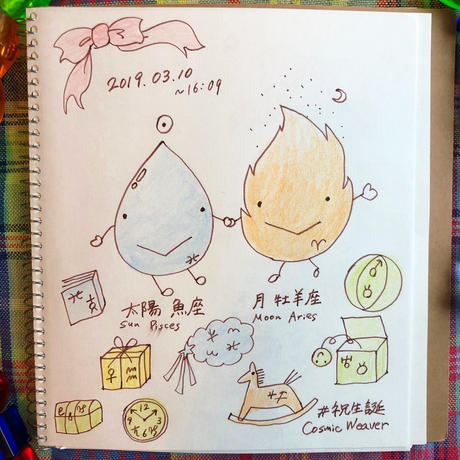 2019.03.10
~16:09
太陽 魚座
Sun Pisces
月 牡羊座
Moon Aries
12
3
6
9
#祝生誕
Cosmic Weaver